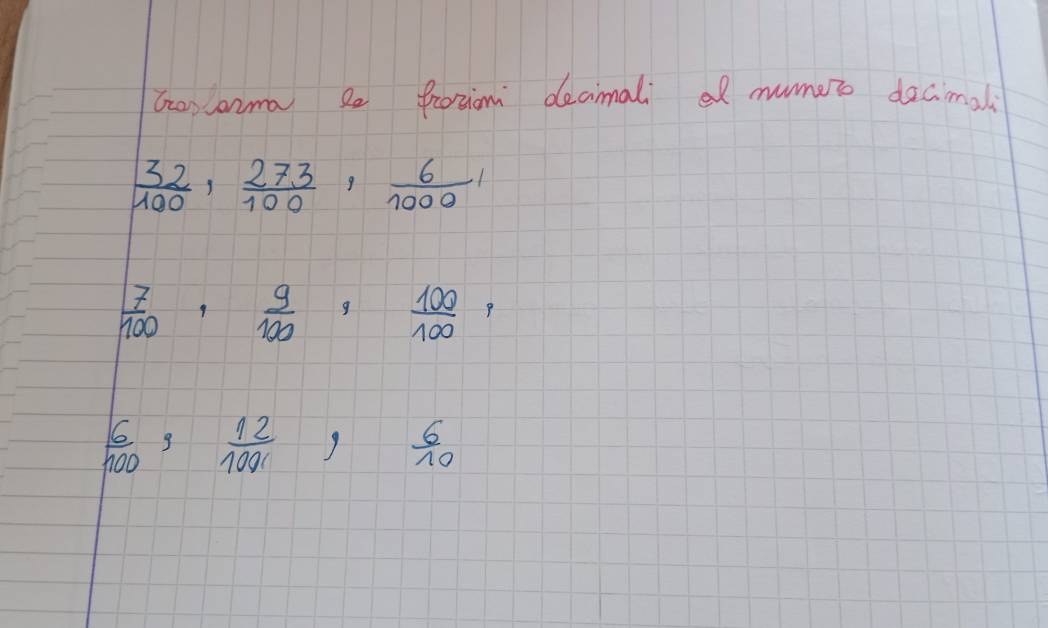 Trasforma le frazioni decimali al numero decimali
32/100, 273/100, 6/1000,
7/100, 9/100, 100/100,
6/100, 12/100, 6/10